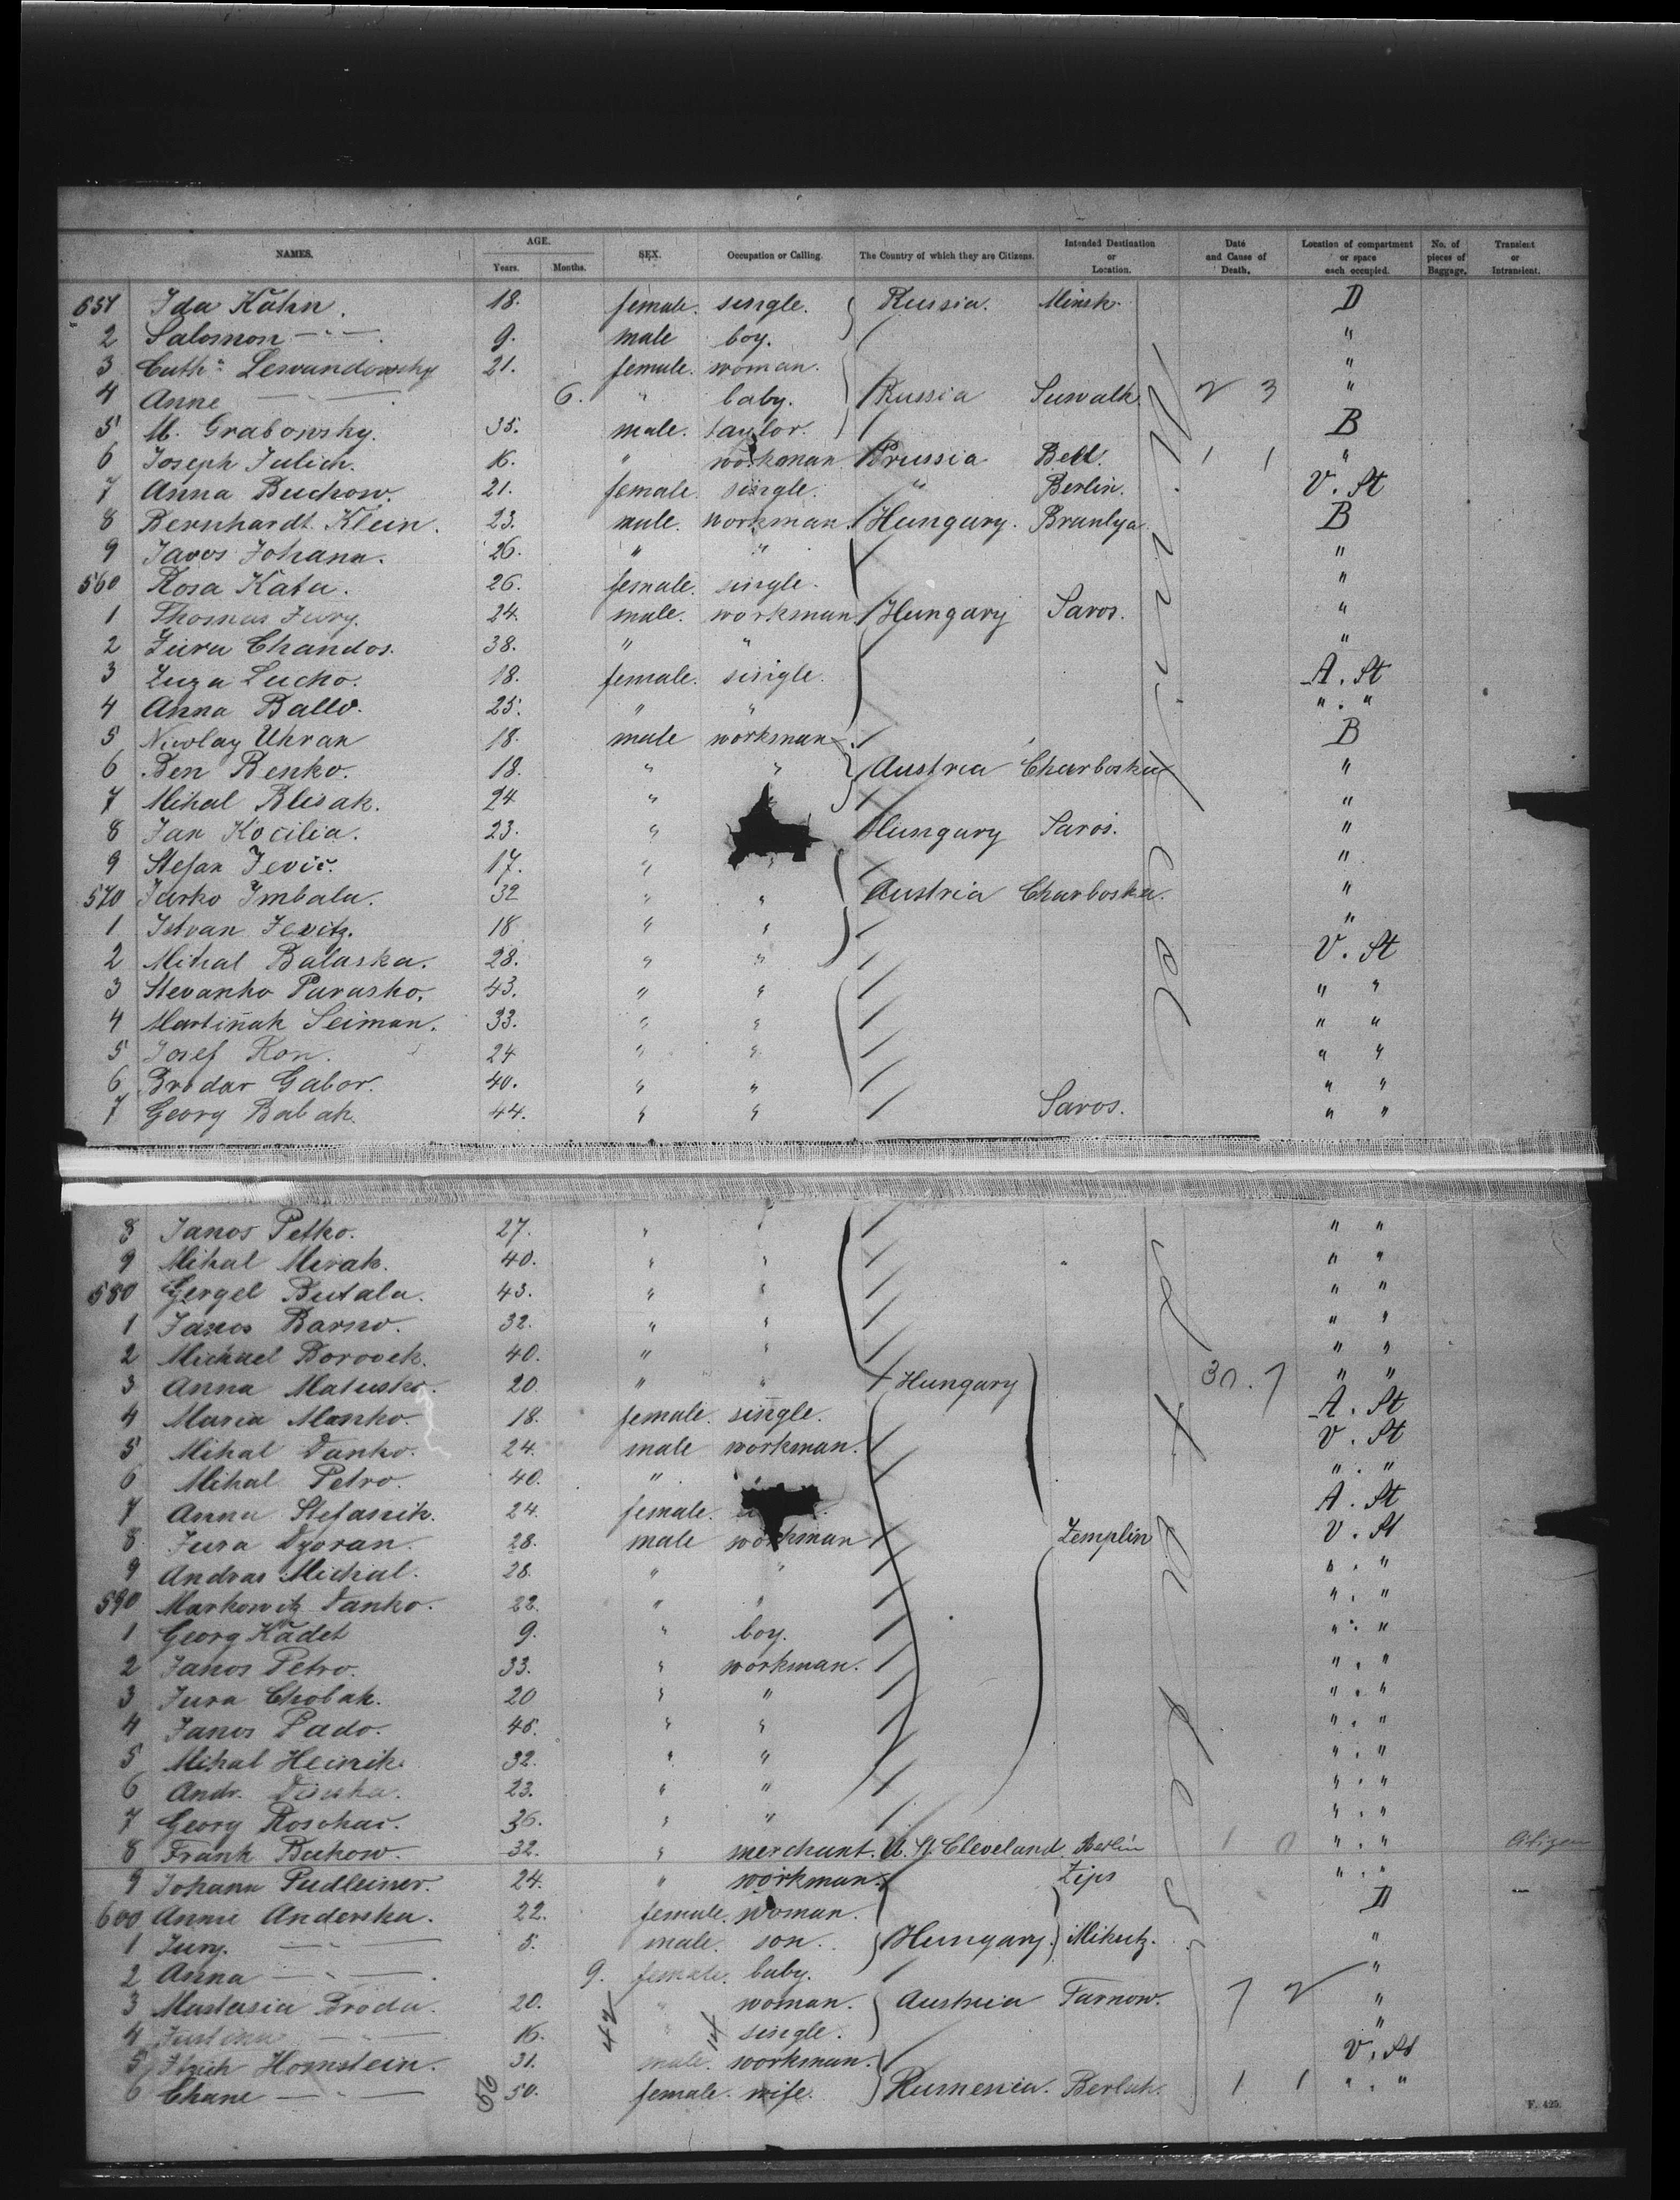 NAMES. AGE. Years. Months. SEX. Occupation or Calling. The Country of which they are Citizens. Intended Destination or Location. Date and Cause of Death. Location of compartment or space each occupied. No. of pieces of Baggage. Transient or Intransient.
551 Ida Kahn. 18. female. single. Russia. Minsk. D
2 Salomon — " — 9. male boy. "
3 Cath: Lewandowsky 21. female. woman. "
4 Anne — " — 6. " baby. Russia Suwalk. 2 3 "
5 M. Grabowsky. 35. male. taylor. B
6 Joseph Julich. 16. " workman Prussia Bell. 1 1 "
7 Anna Buchow. 21. female. single. " Berlin. V. St
8 Bernhardt Klein. 23. male. workman. Hungary. Branlya B
9 Javos Johann. 26. " " "
560 Rosa Kata. 26. female. single. "
1 Thomas Jury. 24. male. workman Hungary Saros. "
2 Jura Chandos. 38. " " "
3 Zuza Lucho. 18. female. single. A. St
4 Anna Ballo. 25. " " " . "
5 Nicolay Uhran 18. male workman B
6 Ben Benko. 18. " " Austria Charboska "
7 Mihal Blisak. 24 " "
8 Jan Kocilia. 23. " Hungary Saros. "
9 Stefan Jevic. 17. " " "
570 Jurko Imbala. 32 " " Austria Charboska. "
1 Istvan Jevitz. 18 " " "
2 Mihal Balaska. 28. " " V. St
3 Stevanko Parasko. 43. " " " "
4 Martinak Seiman. 33. " " " "
5 Josef Kon. 24 " " " "
6 Brodar Gabor. 40. " " " "
7 Georg Babak. 44. " " Saros. " "
8 Janos Petko. 27. " " " "
9 Mihal Mirak. 40. " " " "
580 Gergel Butala. 43. " " " "
1 Janos Barno. 32. " " " "
2 Michael Borovek. 40. " " " "
3 Anna Matusko. 20 " " Hungary 30. 7 " "
4 Maria Manko. 18. female. single. A. St
5 Mihal Danko. 24. male workman. V. St
6 Mihal Petro. 40. " " . "
7 Anna Stefanik. 24. female. A. St
8 Jura Dzoran. 28. male workman Zemplin V. St
9 Andras Michal. 28. " " " . "
590 Markowitz Danko. 22. " " " . "
1 Georg Kadet 9. " boy. " . "
2 Janos Petro. 33. " workman. " . "
3 Jura Chobak. 20 " " " . "
4 Janos Pado. 45. " " " . "
5 Mihal Heinik. 32. " " " . "
6 Andr. 23. " " " . "
7 Georg 36. " " " . "
8 Frank Buchow. 32. " merchant. U. St. Cleveland Berlin 1 0 " . "
9 Johann Pudleiner. 24. " workman. Zips " . "
600 Annie Anderska. 22. female. woman. D
1 Jury. — " — 5. male. son. Hungary. Mikutz. "
2 Anna — " — 9. female. baby. "
3 Mastasia Broda. 20. " woman. Austria Tarnow. 7 2 "
4 Justina — " — 16. " single. "
5 Hornstein. 31. male. workman. V. St
6 Chane — " — 50. female. wife. Rumenia. Berlah. 1 1 " . "
42 14
56
F. 425.